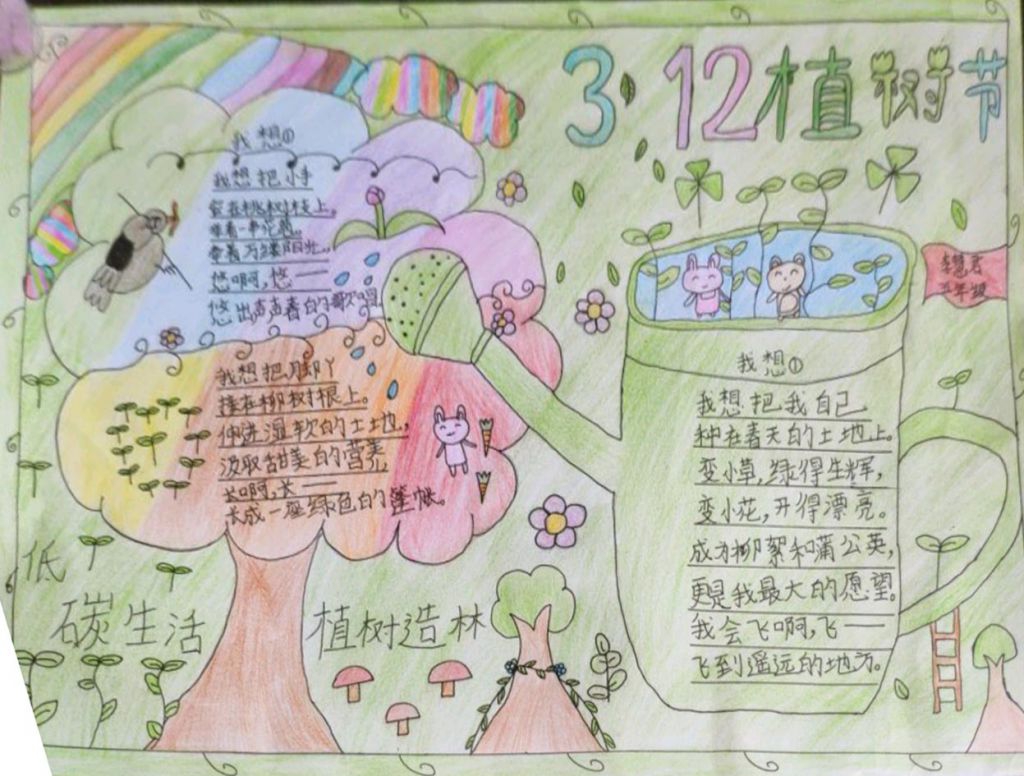 3.12植树节
我想①
我想把小手
安在桃树枝上。
带着一串花苞,
牵着万缕阳光,
悠啊,悠——
悠出声声春的歌唱。
我想把脚丫
接在柳树根上。
伸进湿软的土地,
汲取甜美的营养,
长啊,长——
长成一座绿色的篷帐。
李慧君
五年级
我想①
我想把我自己
种在春天的土地上。
变小草,绿得生辉,
变小花,开得漂亮。
成为柳絮和蒲公英,
更是我最大的愿望。
我会飞啊,飞——
飞到遥远的地方。
低
碳生活
植树造林